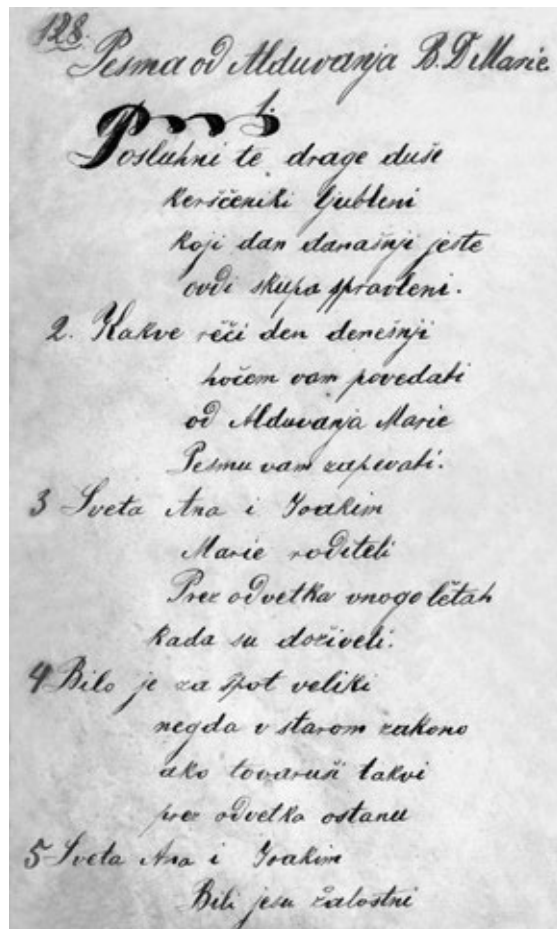 128.
Pesma od Alduvanja B. D Marie
1.
Posluhni te drage duše
kerščeniki ljubleni
koji dan današnji jeste
ovdi skupa spravleni.
2. Kakve rěči den denešnji
hočem vam povedati
od Alduvanja Marie
Pesmu vam zapevati.
3 Sveta Ana i Joakim
Marie roditeli
Prez odvetka vnogo lětah
kada su doživeli.
4 Bilo je za špot veliki
negda v starom zakono
ako tovaruši takvi
prez odvetka ostanu
5 Sveta Ana i Joakim
Bili jesu žalostni